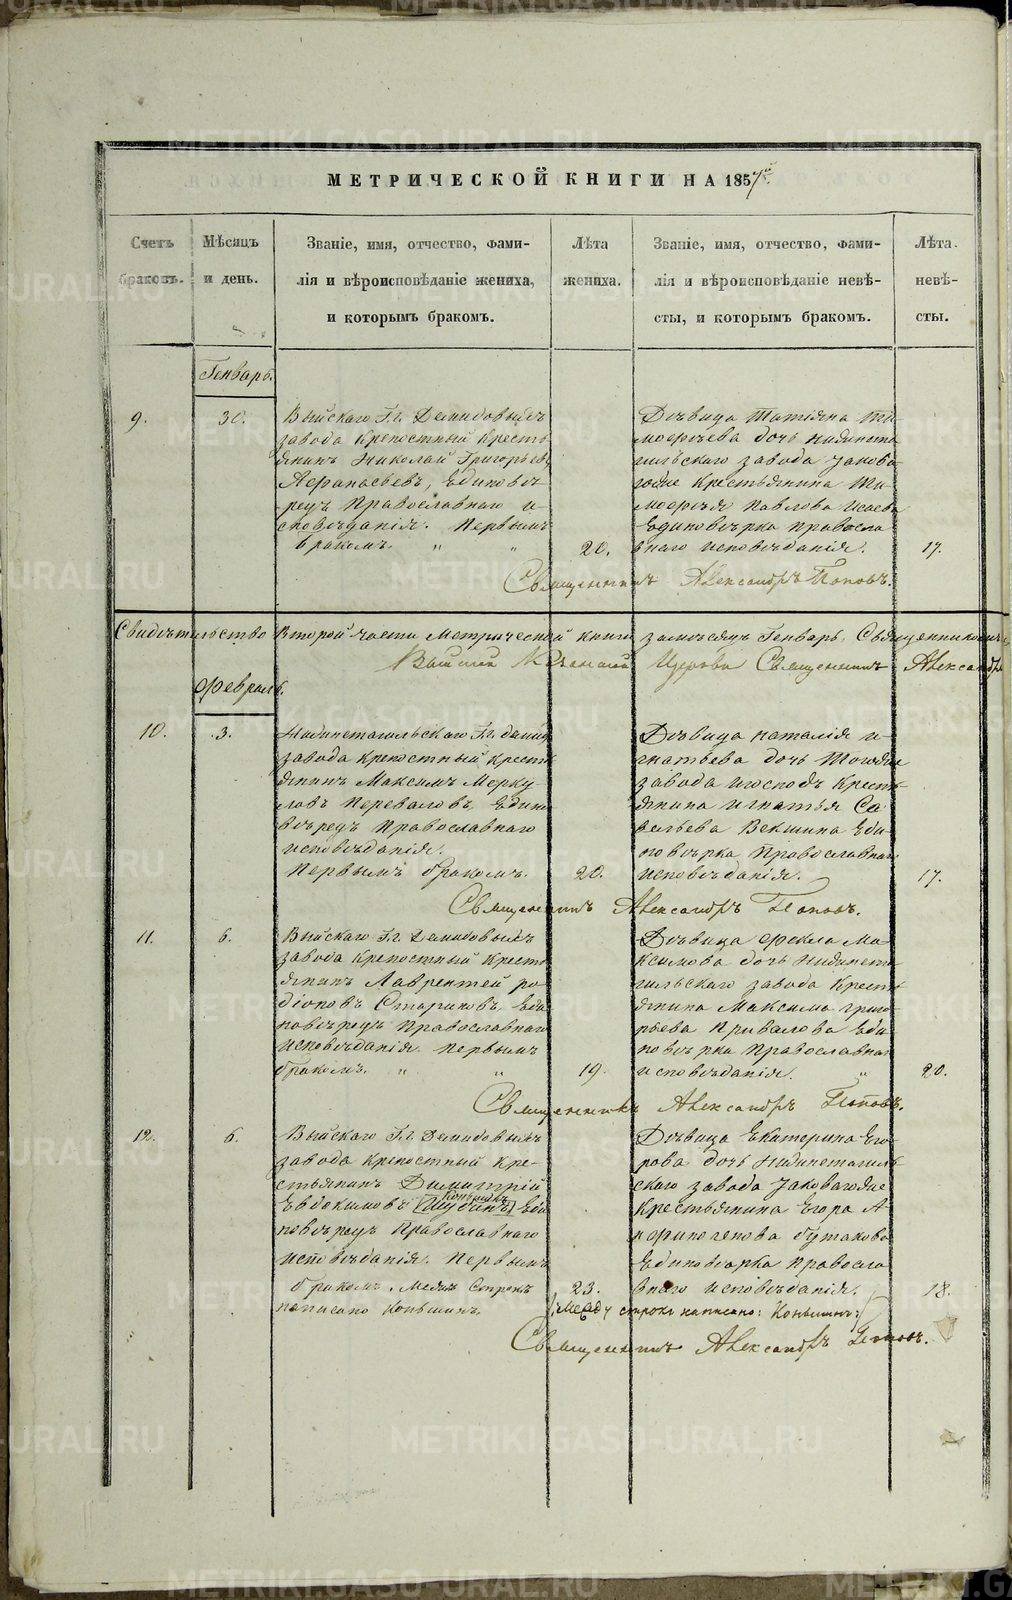 МЕТРИЧЕСКОЙ КНИГИ НА 1857й.
Счетъ браковъ.
Мѣсяцъ и день.
Званіе, имя, отчество, фами-
лія и вѣроисповѣданіе жениха,
и которымъ бракомъ.
Лѣта жениха.
Званіе, имя, отчество, фами-
лія и вѣроисповѣданіе невѣ-
сты, и которымъ бракомъ.
Лѣта невѣ-
сты.
Генварь.
9.
30.
Выйскаго Гг. Демидовыхъ
завода крепостный кресть
янинъ Николай Григорьевъ
Аѳанасьевъ, Единовѣ
рецъ Православнаго и
сповѣданія. Первымъ
бракомъ. " "
20.
Дѣвица Татіяна Ти-
моѳеева дочь Нижнета
гильскаго завода
крестьянина Ти-
моѳея Павлова Исаева
Единовѣрка правосла
внаго исповѣданія.
17.
Священникъ Александръ Поповъ.
Свидѣтельство Второй части Метрической книги за мѣсяцъ Генварь.
Церкви Священникъ Александръ
Февраль.
10.
3.
Нижнетагильскаго Гг. демид
завода крепостный кресть
янинъ Максимъ Мерку
ловъ Переваловъ, Едино
вѣрецъ Православнаго
исповѣданія.
Первымъ бракомъ.
20.
Дѣвица наталія и-
гнатьева дочь
завода господъ кресть
янина игнатья Са
вельева Векшина Еди-
новѣрка Православнаго
исповѣданія.
17.
Священникъ Александръ Поповъ.
11.
6.
Выйскаго Гг. Демидовыхъ
завода крепостный кресть
янинъ Лаврентей ро-
діоновъ Стариковъ, Еди
новѣрецъ Православнаго
исповѣданія. первымъ
бракомъ. " "
19.
Дѣвица ѳекла Ма-
ксимова дочь Нижнета
гильскаго завода Кресть
янина Максима григо-
рьева Привалова Еди-
новѣрка Православнаго
исповѣданія. "
20.
Священникъ Александръ Поповъ.
12.
6.
Выйскаго Гг. Демидовыхъ
завода крепостный кре-
стьянинъ Димитрій
Коньшинъ
Евдокимовъ Еди
новѣрецъ Православнаго
исповѣданія. Первымъ
бракомъ. Межъ строкъ
написано Коньшинъ.
23.
Дѣвица Екатерина Его-
рова дочь Нижнетагиль
скаго завода
крестьянина Егора А-
ѳиногенова бутакова
Единовѣрка правосла
внаго исповѣданія.
18.
Между строкъ написано: Коньшинъ
Священникъ Александръ Поповъ.